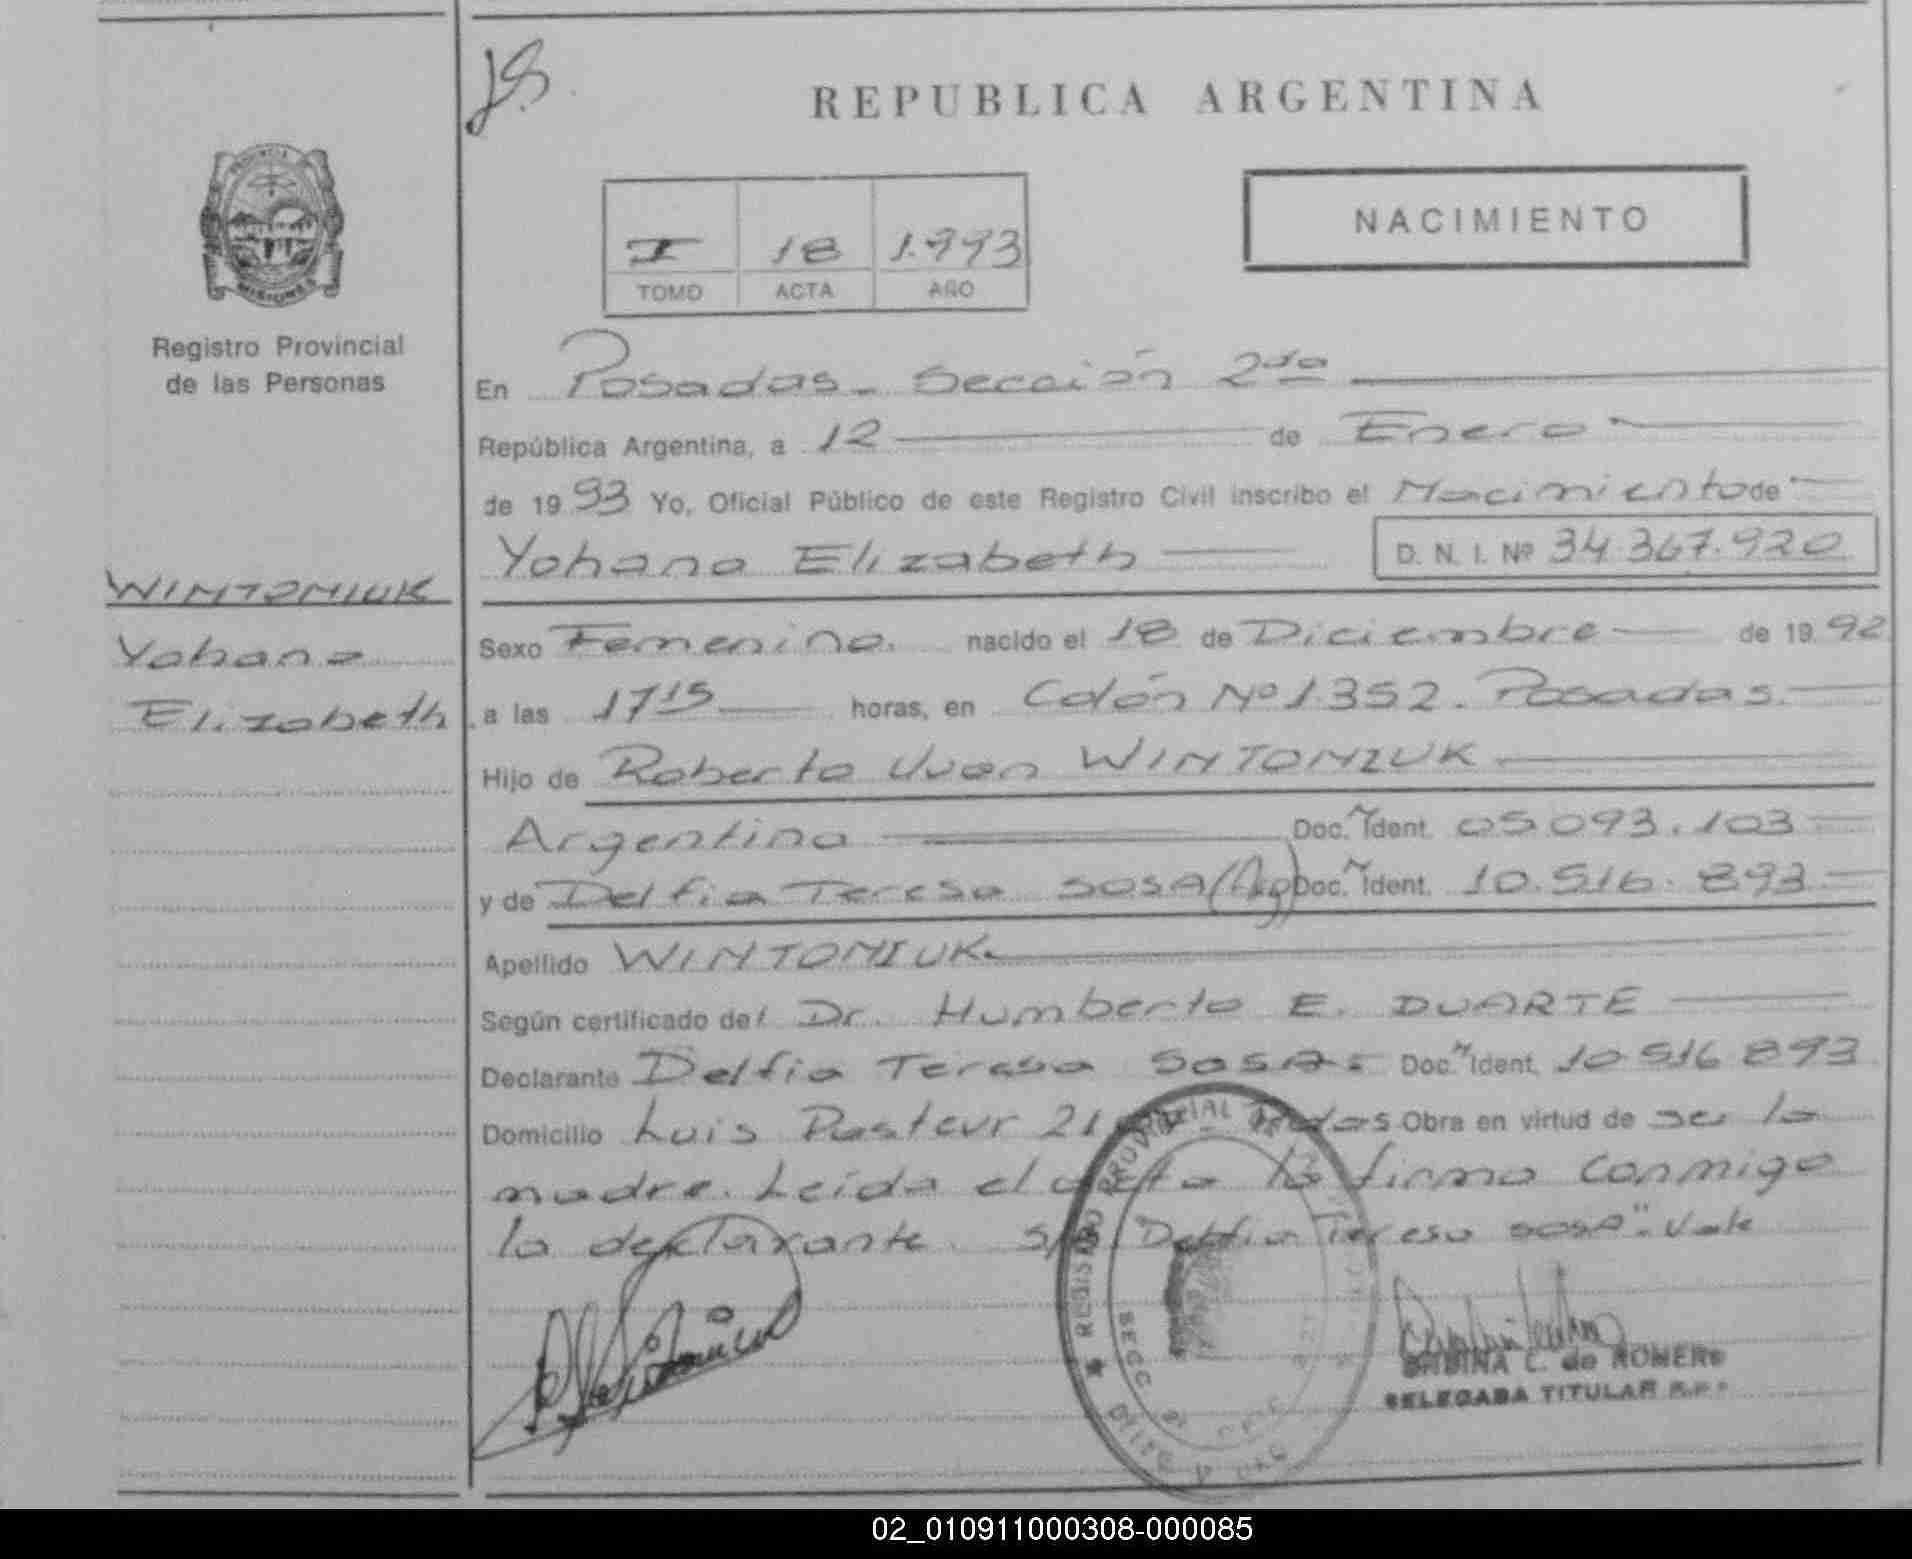 REPUBLICA ARGENTINA
NACIMIENTO
I 18 1.993
TOMO ACTA AÑO
PROVINCIA
MISIONES
Registro Provincial
de las Personas
WINTONIUK
Yohana
Elizabeth
En Posadas - Sección 2da
República Argentina, a 12 de Enero
de 1993 Yo, Oficial Público de este Registro Civil inscribo el Nacimiento de
Yohana Elizabeth D. N. I. Nº 34.367.920
Sexo Femenino. nacido el 18 de Diciembre de 1992
a las 1715 horas, en Colón Nº 1.352. Posadas.
Hijo de Roberto Juan WINTONIUK
Argentino Doc. Ident. 05.093.103
y de Delfia Teresa SOSA (Arg) Doc. Ident. 10.516.893
Apellido WINTONIUK
Según certificado del Dr. Humberto E. DUARTE
Declarante Delfia Teresa SOSA. Doc. Ident. 10.516.893
Domicilio Luis Pasteur Obra en virtud de ser la
madre. Leída el acta la firma conmigo
la declarante. "Delfia Teresa SOSA". Vale
REGISTRO PROVINCIAL
SECC
C. de ROMERO
DELEGADA TITULAR R.P.P
02_010911000308-000085